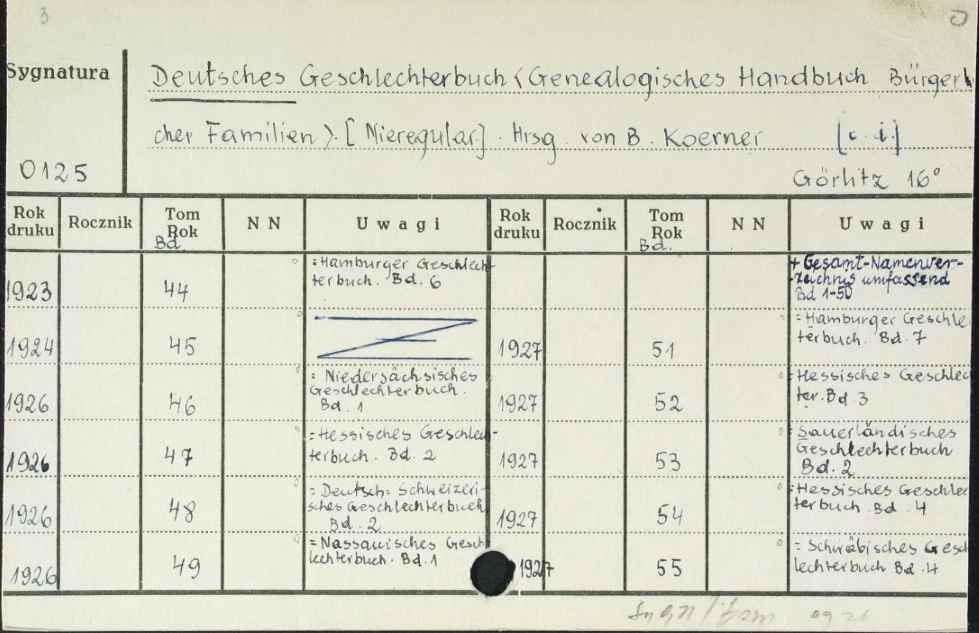 3
Sygnatura
Deutsches Geschlechterbuch (Genealogisches Handbuch Bürgerli
cher Familien). [Nieregular]. Hrsg. von B. Koerner [c. i.]
0125
Görlitz 16°
Rok druku Rocznik Tom Rok Bd. NN Uwagi Rok druku Rocznik Tom Rok Bd. NN Uwagi
1923 44 = Hamburger Geschlech-
terbuch. Bd. 6
+ Gesamt-Namenver-
zeichnis umfassend
Bd 1-50
1924 45
1927 51 = Hamburger Geschle
terbuch. Bd. 7
1926 46 = Niedersächsisches
Geschlechterbuch.
Bd. 1
1927 52 = Hessisches Geschlec
ter. Bd 3
1926 47 = Hessisches Geschlech-
terbuch. Bd. 2
1927 53 = Sauerländisches
Geschlechterbuch
Bd. 2
1926 48 = Deutsch-Schweizeri-
sches Geschlechterbuch
Bd. 2
1927 54 = Hessisches Geschlec
terbuch. Bd. 4
1926 49 = Nassauisches Gesch
lechterbuch. Bd. 1
1927 55 = Schwäbisches Gesch
lechterbuch Bd. 4